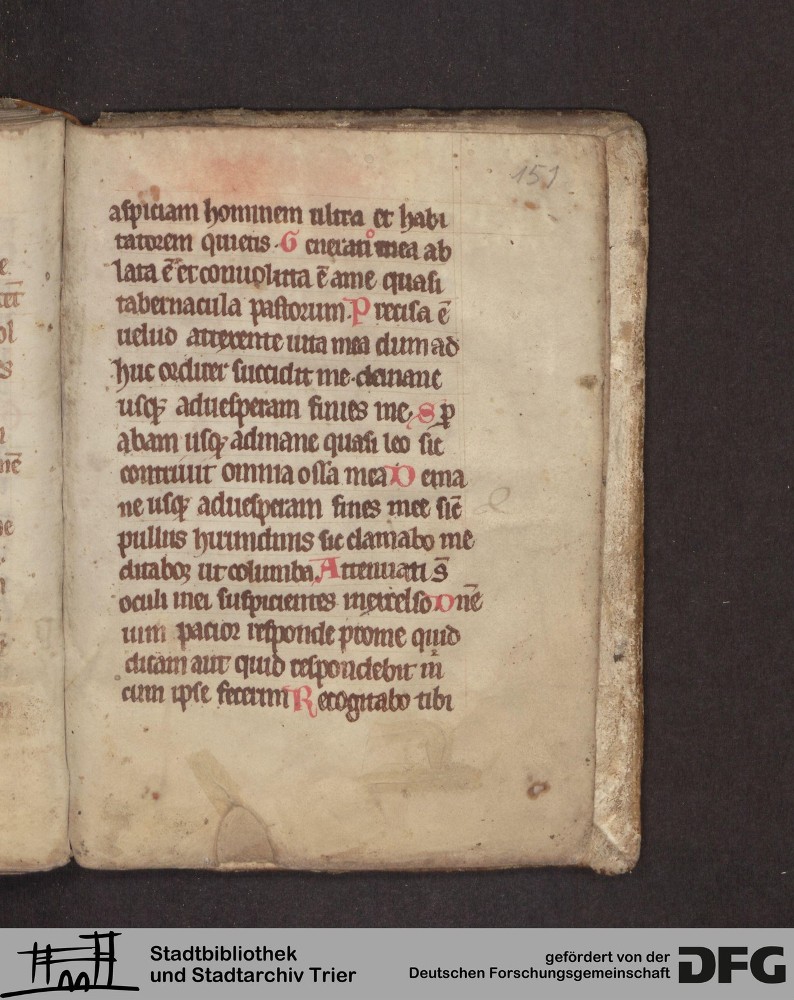 151
aspiciam hominem ultra et habi
tatorem quietis. Generatio mea ab
lata ē et conuoluta ē ame quasi
tabernacula pastorum. Precisa ē
uelud atexente uita mea dum ad
huc ordirer succidit me. demane
usqꝫ aduesperam finies me, S ꝑ
abam usqꝫ admane quasi leo sic
contriuit omnia ossa mea Dema
ne usqꝫ aduesperam finies me sic̄
pullus hirundinis sic clamabo me
ditaboꝛ ut columba, Attenuati s̄
oculi mei suspicientes inexcelso Dn̄e
uim pacior responde pro me quid
dicam aut quid respondebit m̄
cum ipse fecerim Recogitabo tibi
Stadtbibliothek
und Stadtarchiv Trier
gefördert von der
Deutschen Forschungsgemeinschaft
DFG